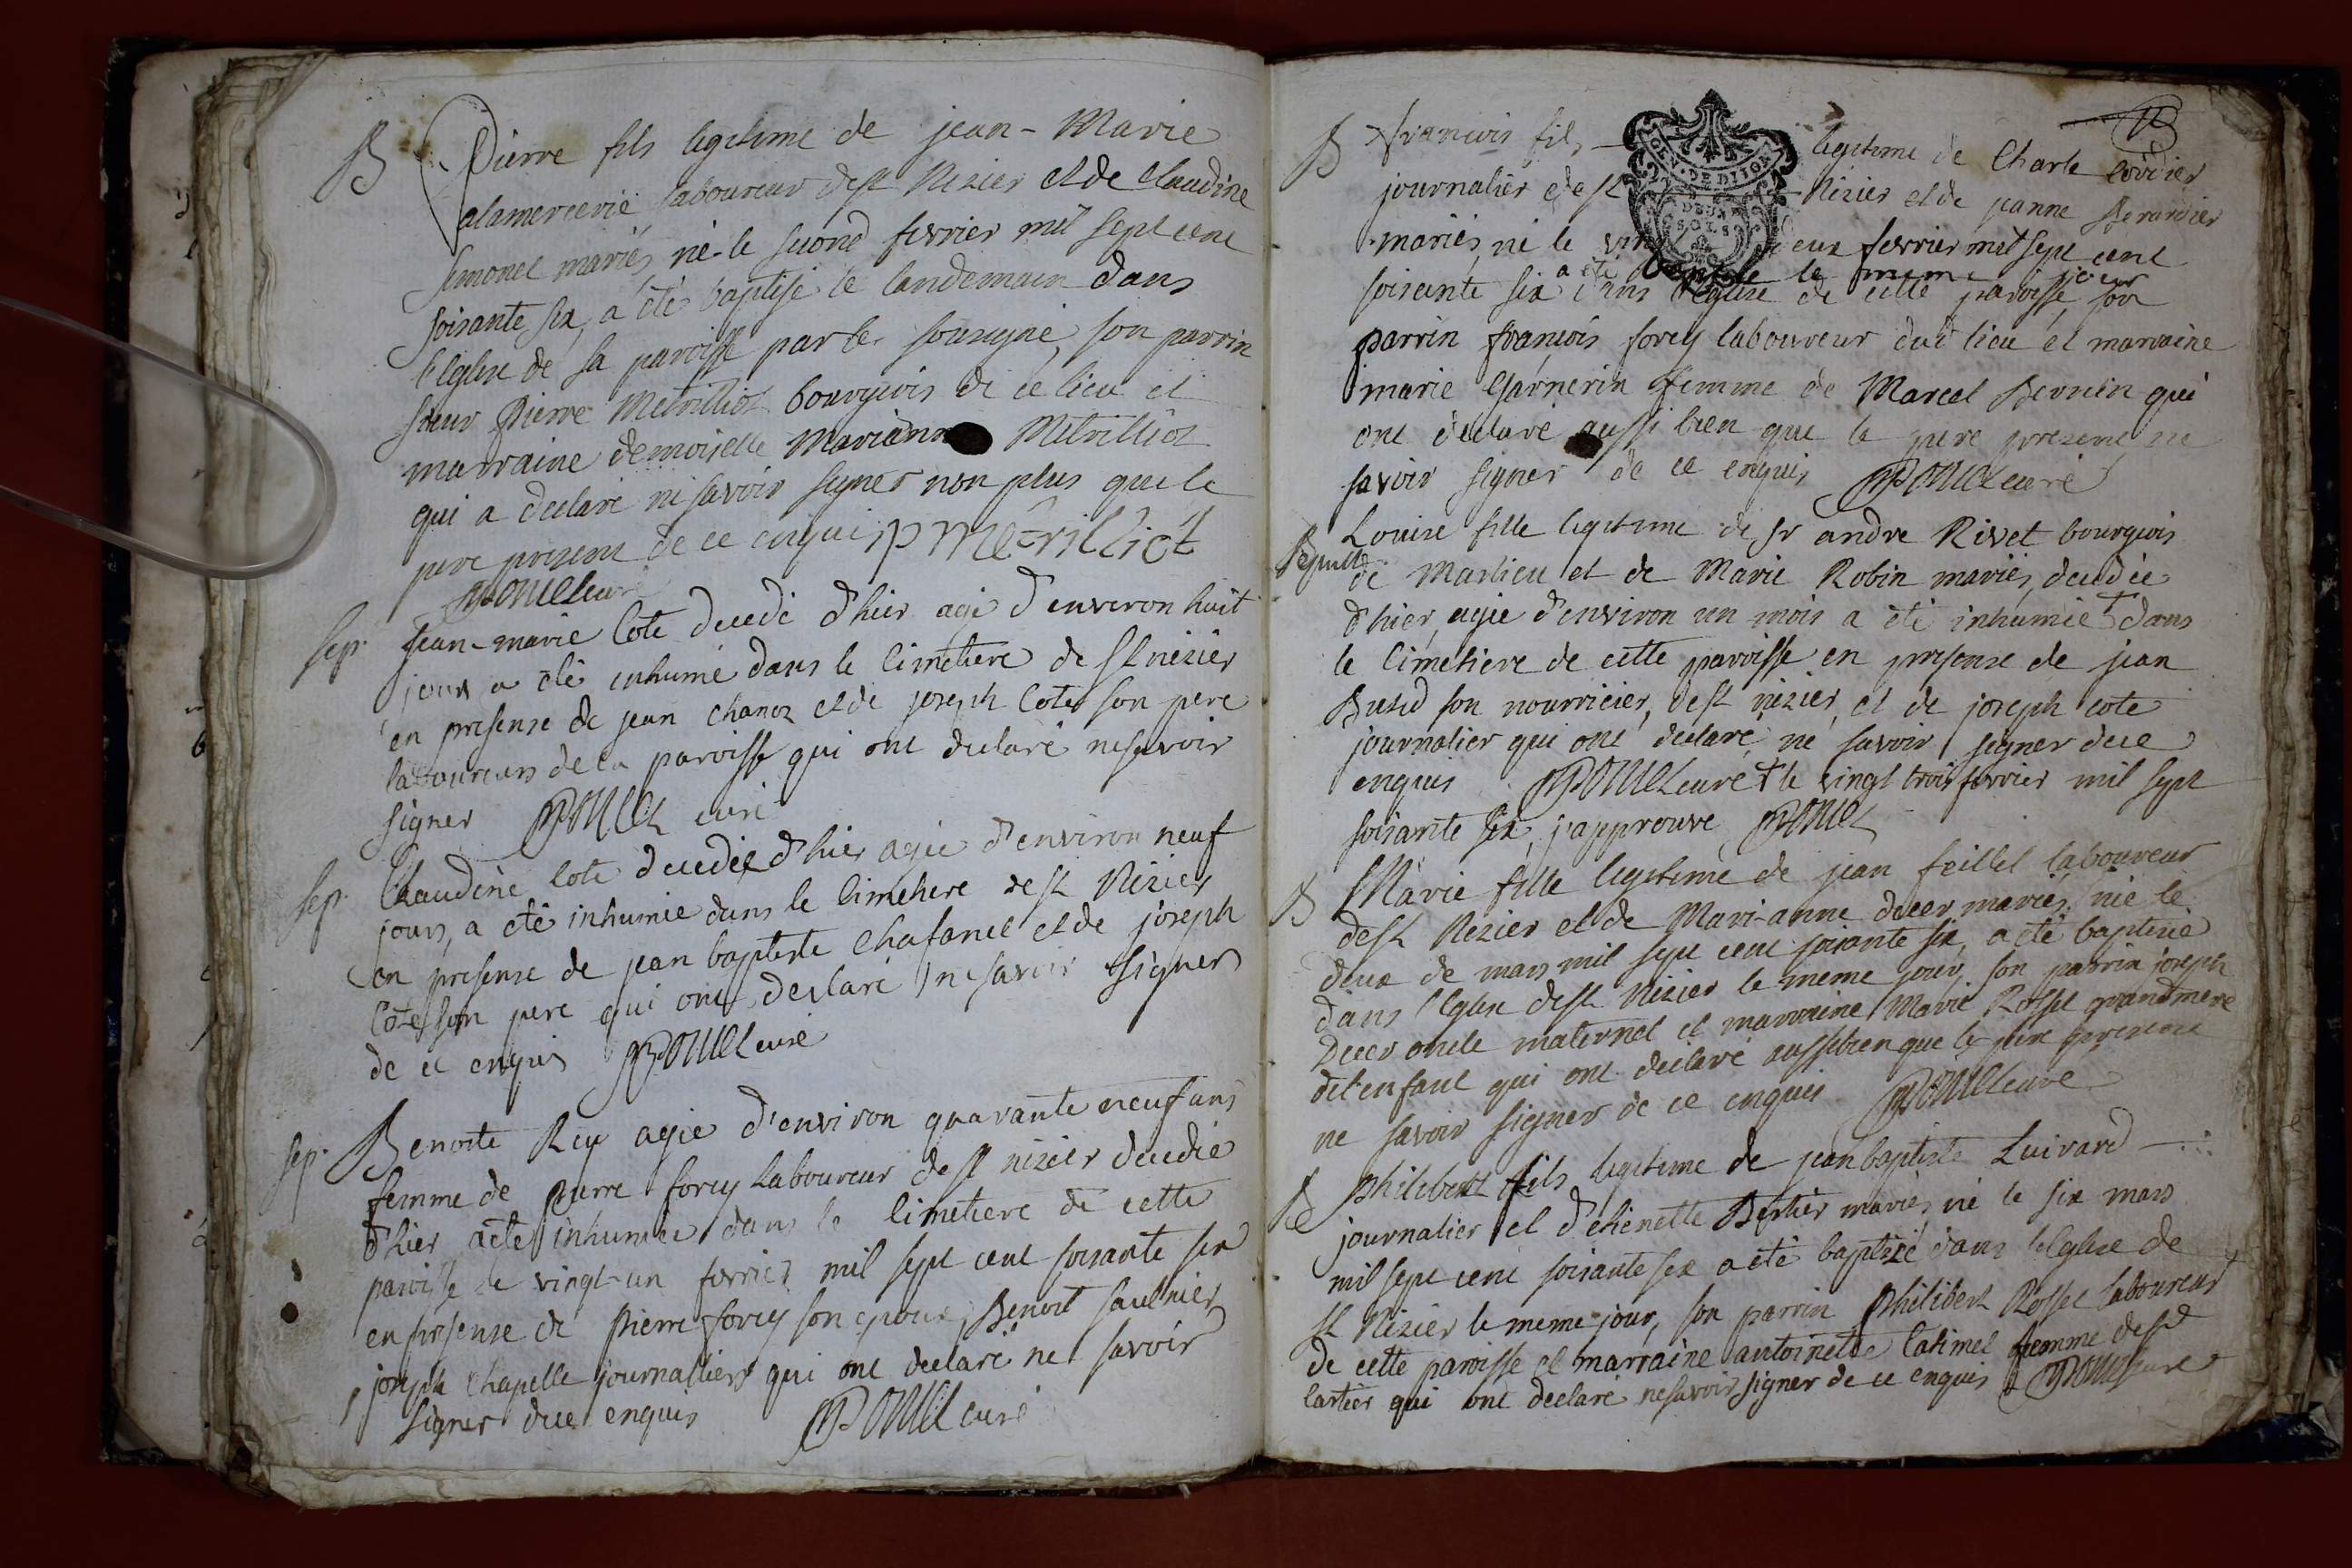 B Pierre fils legitime de jean-Marie
alamercerie laboureur de st Nizier et de Claudine
Simonet mariés, né le second fevrier mil sept cent
soisante six, a été baptisé le landemain dans
l'Eglise de sa paroisse par le sousigné, son parrin
sieur Pierre Metrilliot bourgeois de ce lieu et
marraine demoiselle Marianne Metrilliot
qui a declaré ne savoir signer non plus que le
pere present de ce enquis PMetrilliot
curé
sep. jean-marie Cote decedé d'hier agé d'environ huit
jours a été inhumé dans le Cimetiere de St nizier
en presense de jean chanoz et de joseph Cote son pere
laboureurs de la paroisse qui ont declaré ne savoir
signer curé
sep. Claudine Cote decedée d'hier agée d'environ neuf
jours, a été inhumée dans le Cimetiere de st Nizier
en presense de jean baptiste Chafanel et de joseph
Cote son pere qui ont declaré ne savoir signer
de ce enquis curé
sep. Benoite Rey agée d'environ quarante neuf ans
femme de Pierre forey Laboureur de st nizier decedée
d'hier a été inhumée dans le Cimetiere de cette
paroisse le vingt-un fevrier mil sept cent soisante six
en presense de Pierre forey son epoux, Benoit saulnier,
joseph Chapelle journalliers qui ont declaré ne savoir
signer de ce enquis curé
B francois fils legitime de Charle Cordier
journalier de st Nizier et de janne Berardier
mariés, né le vingt deux fevrier mil sept cent
a été baptisé le meme jour
soisante six dans l'Eglise de cette paroisse, son
parrin francois forey laboureur dud lieu et marraine
marie Garnerin femme de Marcel Bernin qui
ont declaré aussi bien que le pere present ne
savoir signer de ce enquis curé
Sepult. Louise fille legitime de sr andre Rivet bourgeois
de Marlieu et de Marie Robin mariés, decedée
d'hier, agée d'environ un mois a été inhumée † dans
le Cimetiere de cette paroisse en presense de jean
son nourricier, de st nizier, et de joseph cote
journalier qui ont declaré ne savoir signer de ce
enquis curé † le vingt trois fevrier mil sept
soisante six, j'approuve
B Marie fille legitime de jean feillet laboureur
de st Nizier et de Mari-anne decer mariés, née le
deux de mars mil sept cent soisante six, a été baptisée
dans l'Eglise de st Nizier le meme jour, son parrin joseph
Decer oncle maternel et marraine Marie Rosset grandmere
de l'enfant qui ont declaré aussi bien que le pere present
ne savoir signer de ce enquis curé
B Philibert fils legitime de jean baptiste Luivard
journalier et d'etienette Bertier mariés né le six mars
mil sept cent soisante six a été baptizé dans l'Eglise de
st Nizier le meme jour, son parrin Philibert Rosset laboureur
de cette paroisse et marraine antoinette Catimel femme de sd
Cartier qui ont declaré ne savoir signer de ce enquis curé
GEN. DE DIJON
DEUX
SOLS